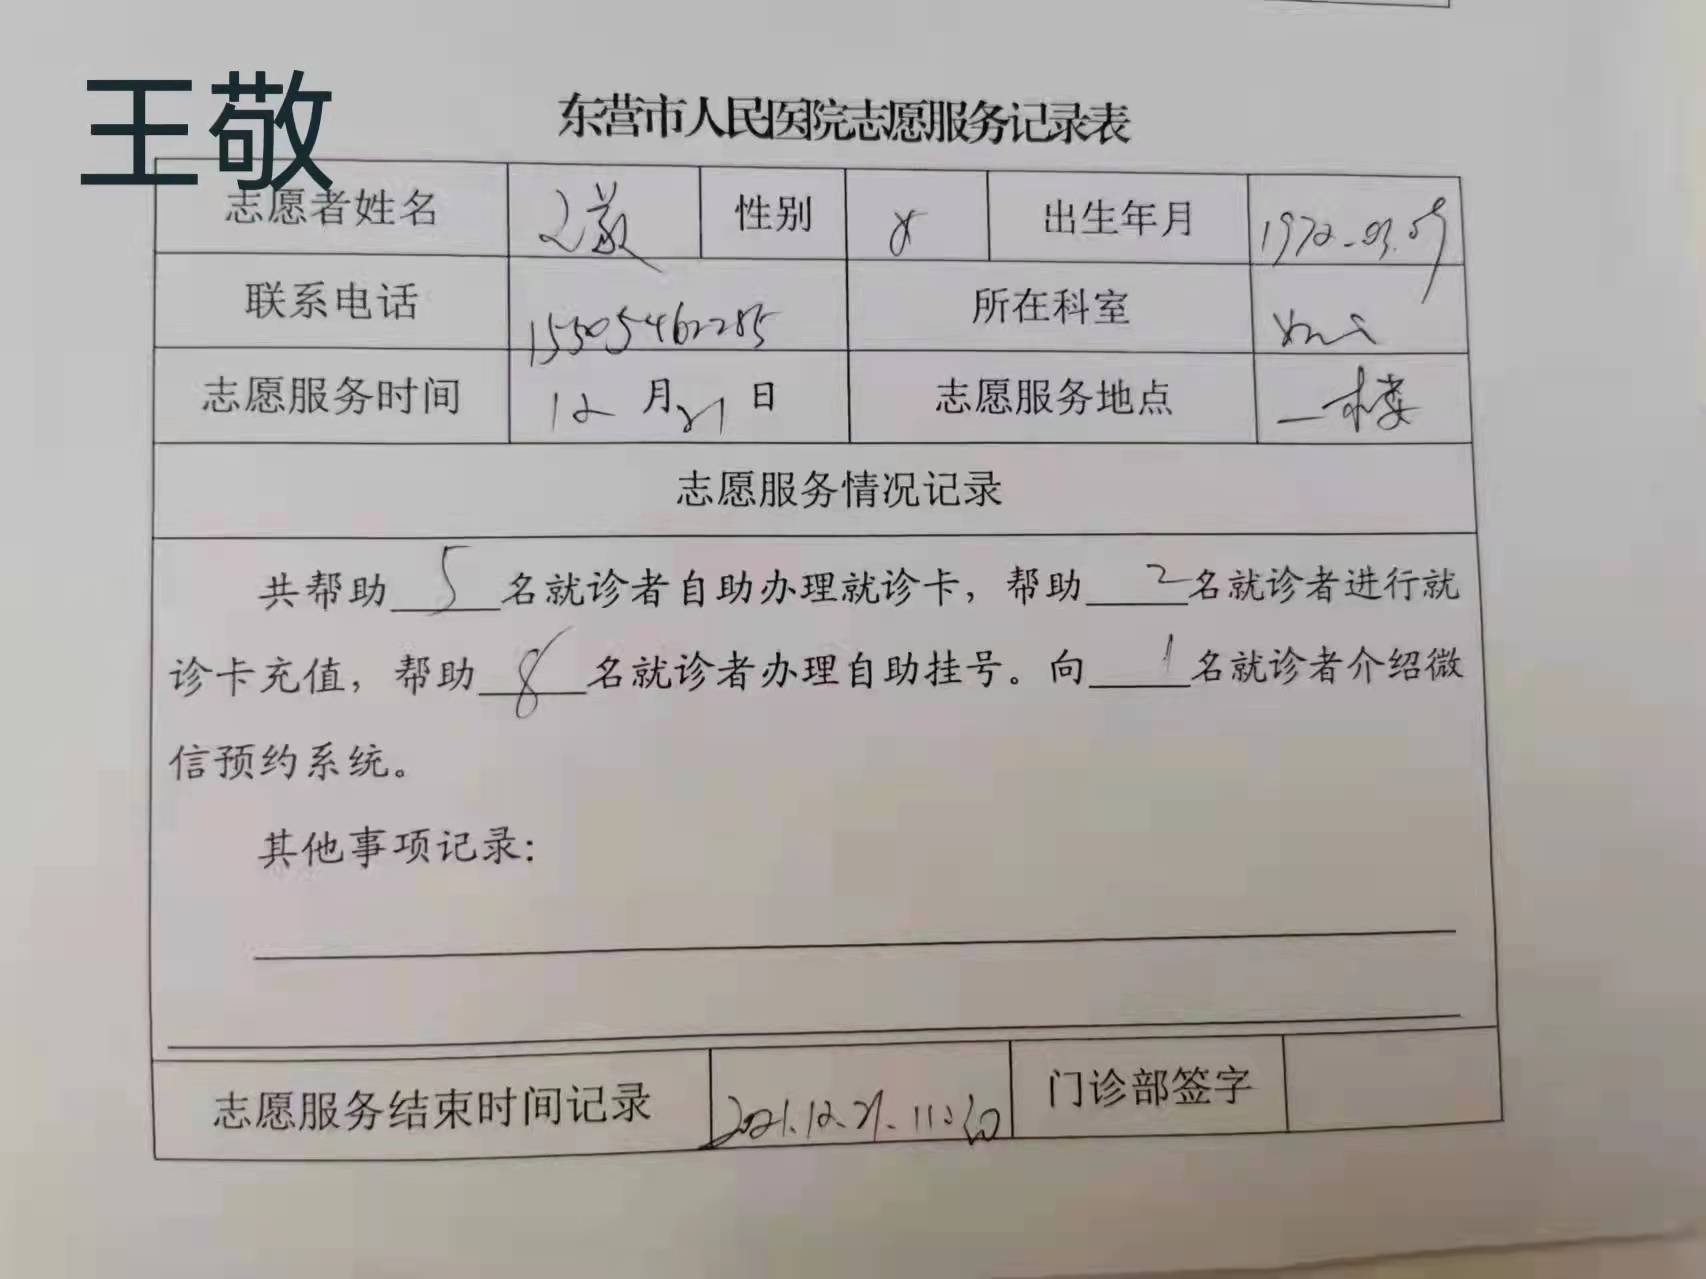 王敬
东营市人民医院志愿服务记录表
志愿者姓名 王敬 性别 女 出生年月 1972.03.09
联系电话 15505462285 所在科室
志愿服务时间 12月21日 志愿服务地点 一楼
志愿服务情况记录
共帮助5名就诊者自助办理就诊卡，帮助2名就诊者进行就
诊卡充值，帮助8名就诊者办理自助挂号。向1名就诊者介绍微
信预约系统。
其他事项记录：
志愿服务结束时间记录 2021.12.21. 门诊部签字